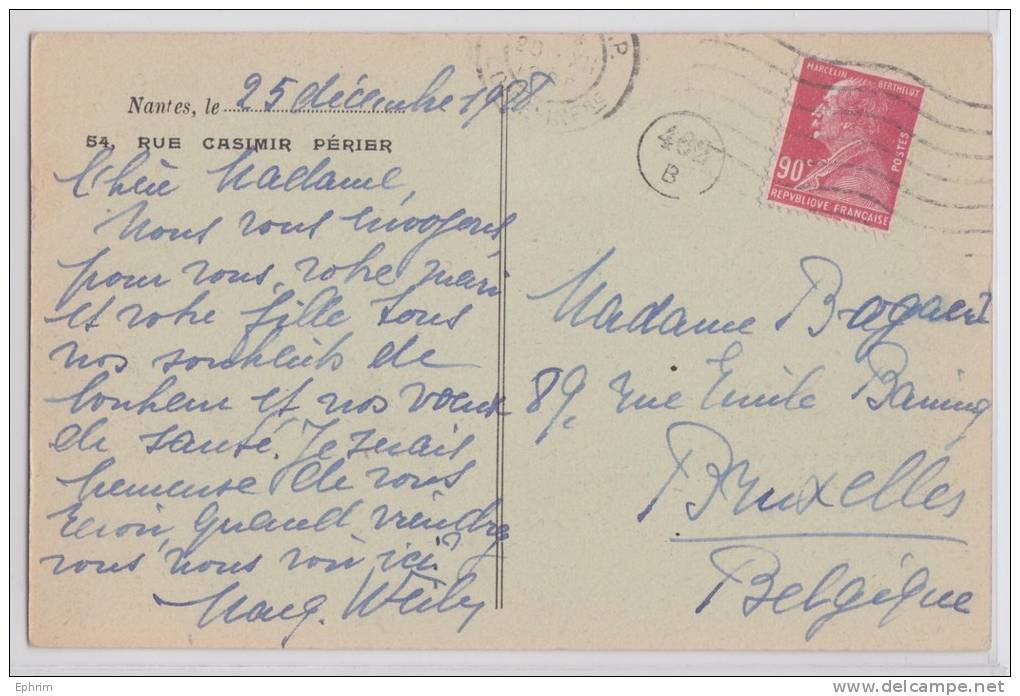 Nantes, le 25 décembre 1928
54, RUE CASIMIR PÉRIER
Chère Madame,
Nous vous envoyons
pour vous, votre mari
et votre fille tous
nos souhaits de
bonheur et nos voeux
de santé. Je serais
heureuse de vous
revoir, quand viendrez
vous nous voir ici?
Marg.
402
B
MARCELIN BERTHELOT
POSTES
90c
REPVBLIQUE FRANÇAISE
Madame Bogaert
89, rue Emile Banning
Bruxelles
Belgique
Ephrim
www.delcampe.net